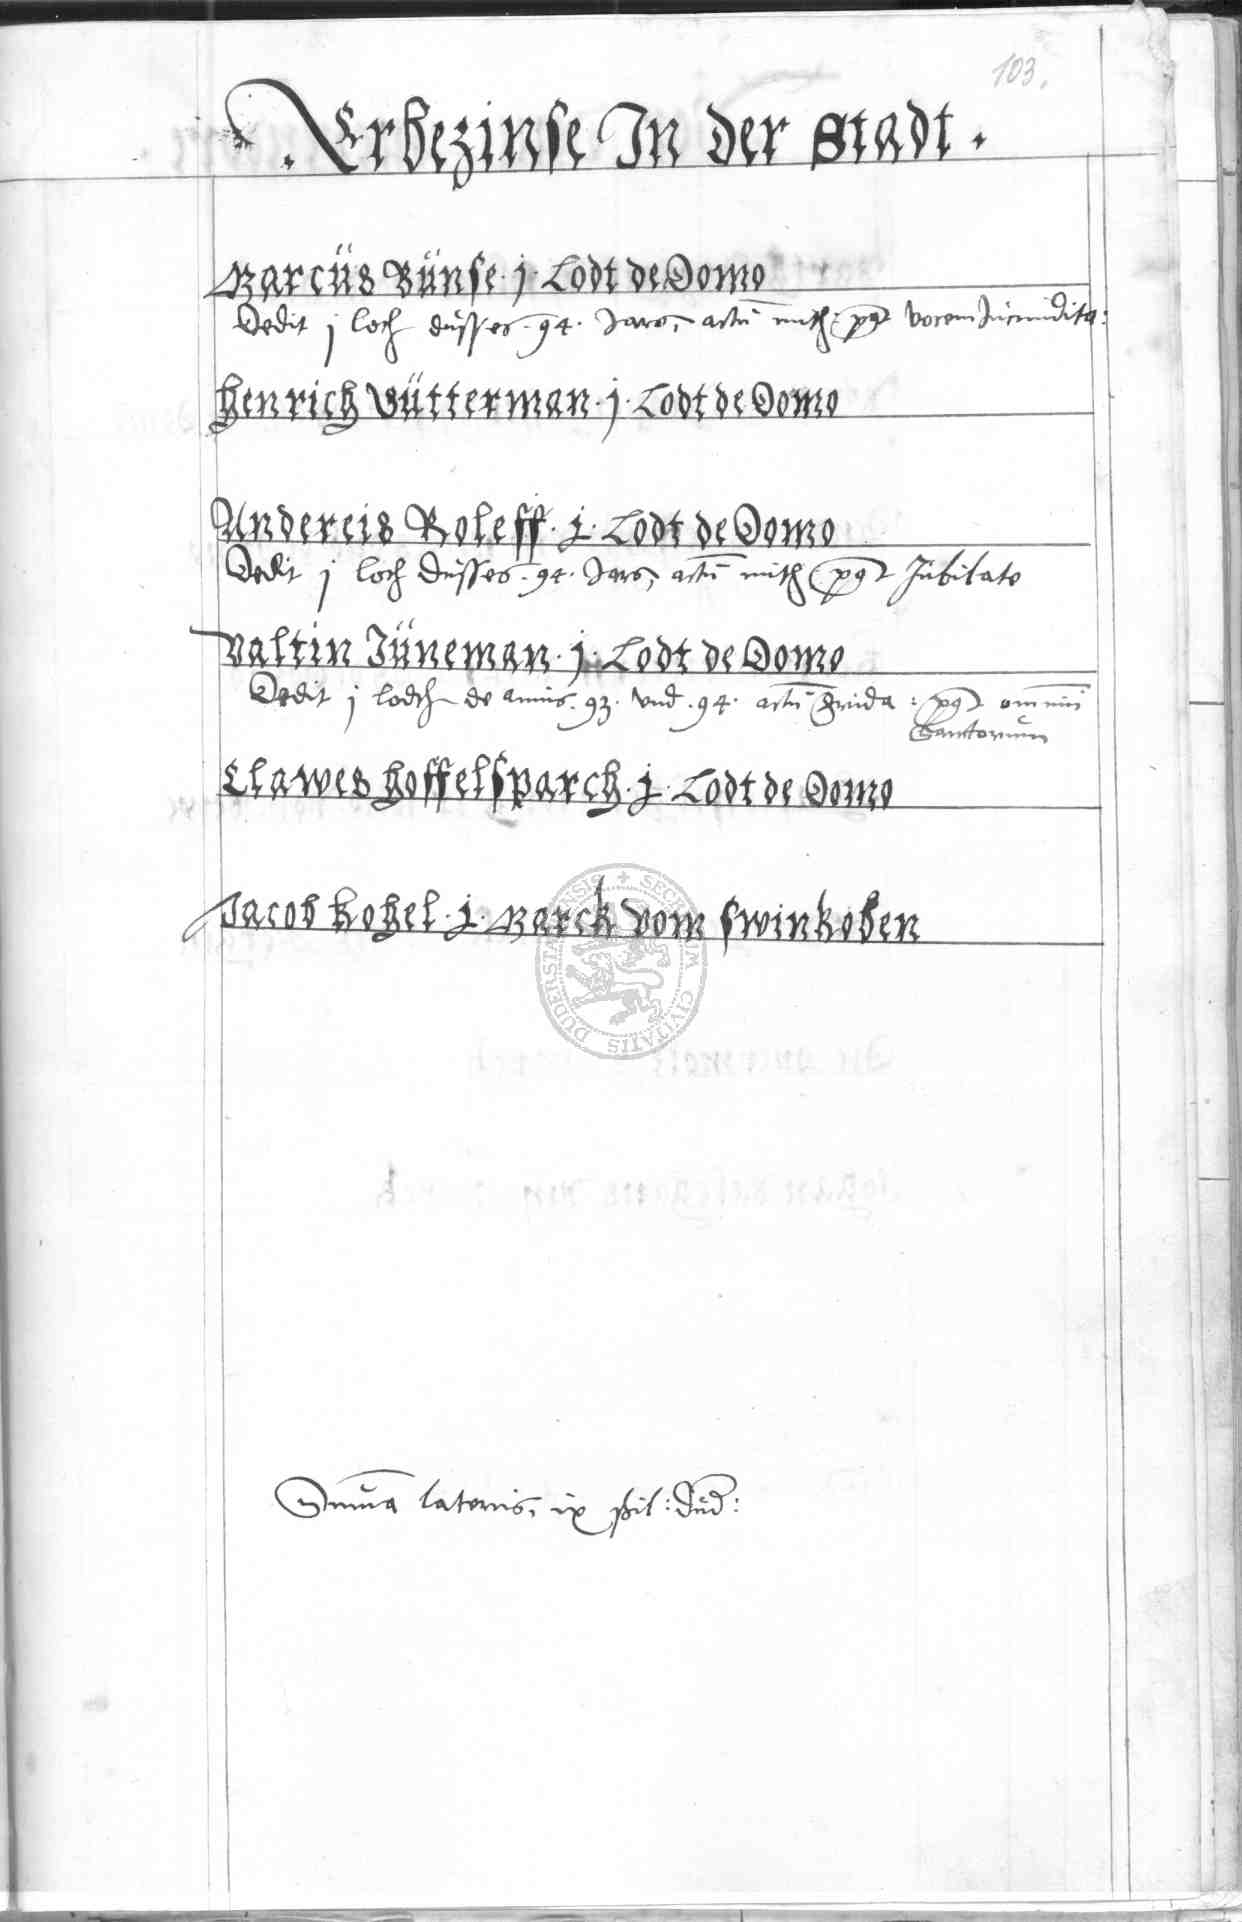 103.
. Erbezinse In der Stadt .
Marcüs Bünse . j . Lodt de Domo
Dedit j loth düsses . 94 . Jars, actū mith : pq vocem Jücundita :
Henrich Bütterman . j . Lodt de Domo
Andereis Roleff . j . Lodt de Domo
Dedit j loth düsses . 94 . Jars, actū mith pq Jübilate
Valtin Jüneman . j . Lodt de Domo
Dedit j lodth de annis . 93 . vnd . 94 . actū frida : pq omniū
Sanctorum
Clawes Hoffelsparch . j . Lodt de Domo
Jacob Kohel . j . Marck vom swinkoben
Sum̄a lateris, ix ßil : düd :
SECRETUM CIVITATIS DUDERSTADENSIS